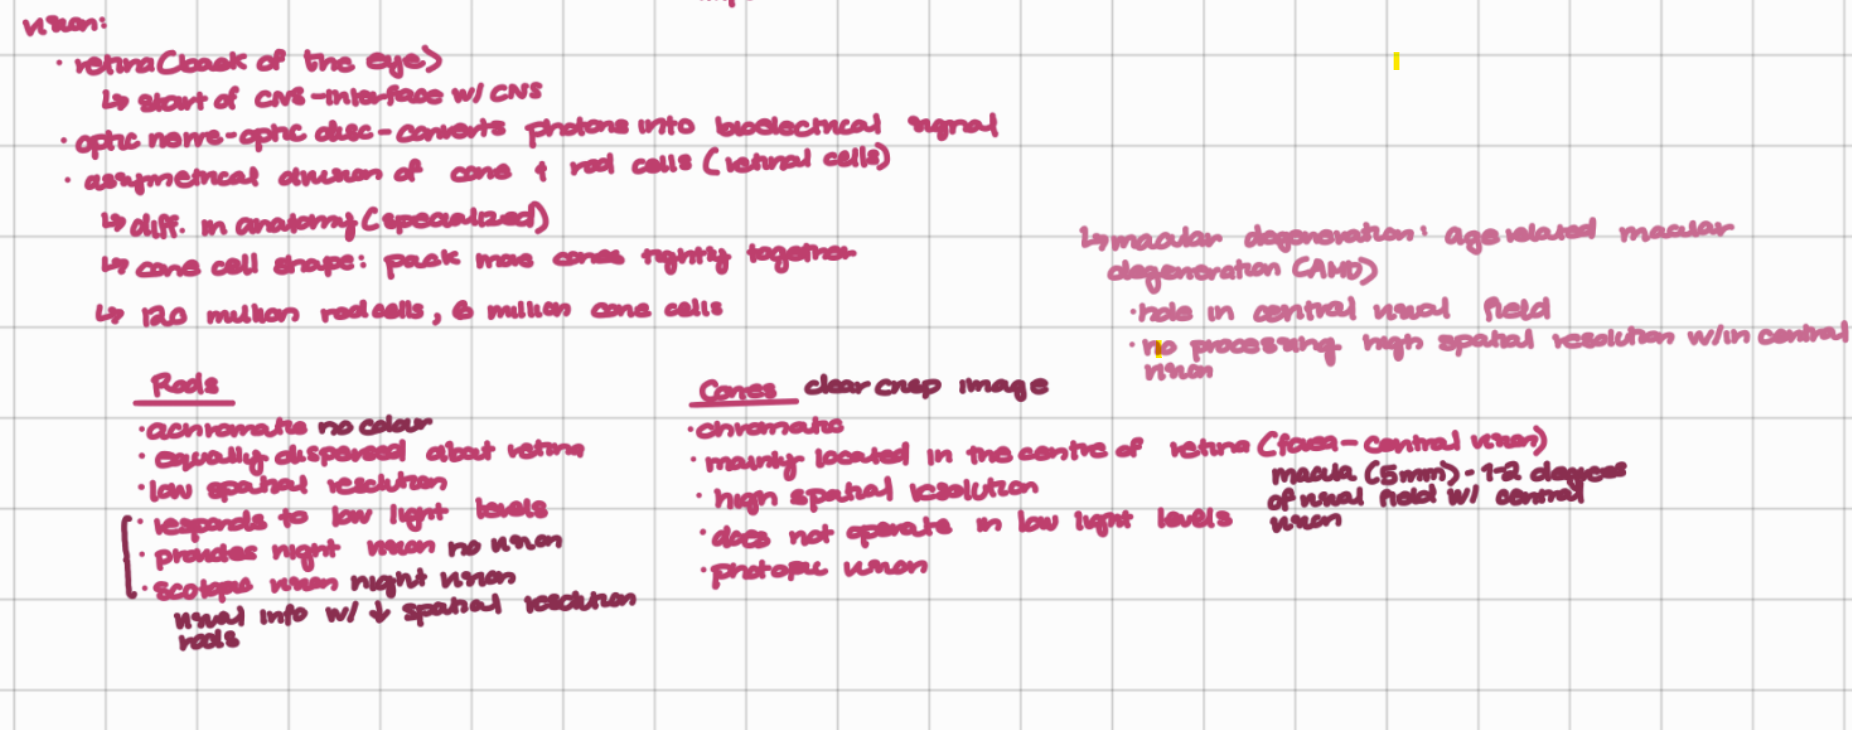 vision:
· retina (back of the eye)
↳ start of CNS - interface w/ CNS
· optic nerve - optic disc - converts photons into bioelectrical signal
· assymetrical division of cone + rod cells (retinal cells)
↳ diff. in anatomy (specialized)
↳ cone cell shape: pack more cones tightly together
↳ 120 million rod cells, 6 million cone cells
↳ macular degeneration: age related macular
degeneration (AMD)
· hole in central visual field
· no processing high spatial resolution w/in central
vision
Rods
· achromatic no colour
· equally dispersed about retina
· low spatial resolution
· responds to low light levels
· provides night vision no vision
· scotopic vision night vision
visual info w/ ↓ spatial resolution
rods
Cones clear crisp image
· chromatic
· mainly located in the centre of retina (fovea - central vision)
macula (5mm) - 1-2 degrees
of visual field w/ central
vision
· high spatial resolution
· does not operate in low light levels
· photopic vision